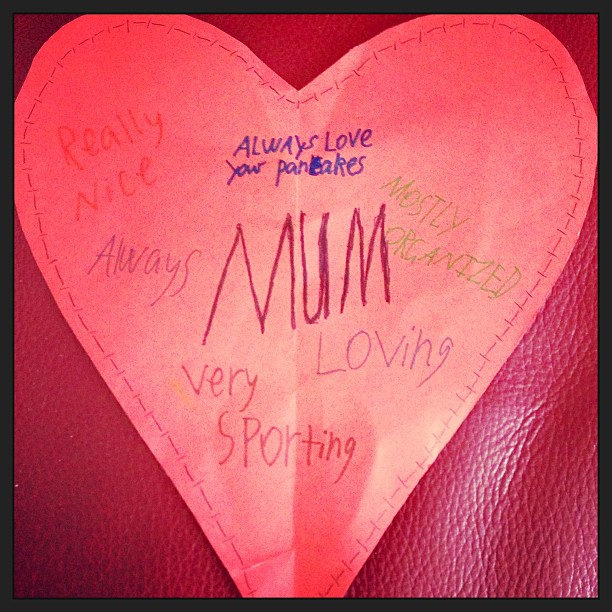 Really
Nice
ALWAYS LOVE
your pancakes
MOSTLY
ORGANIZED
MUM
Always
LOVing
very
SPORting